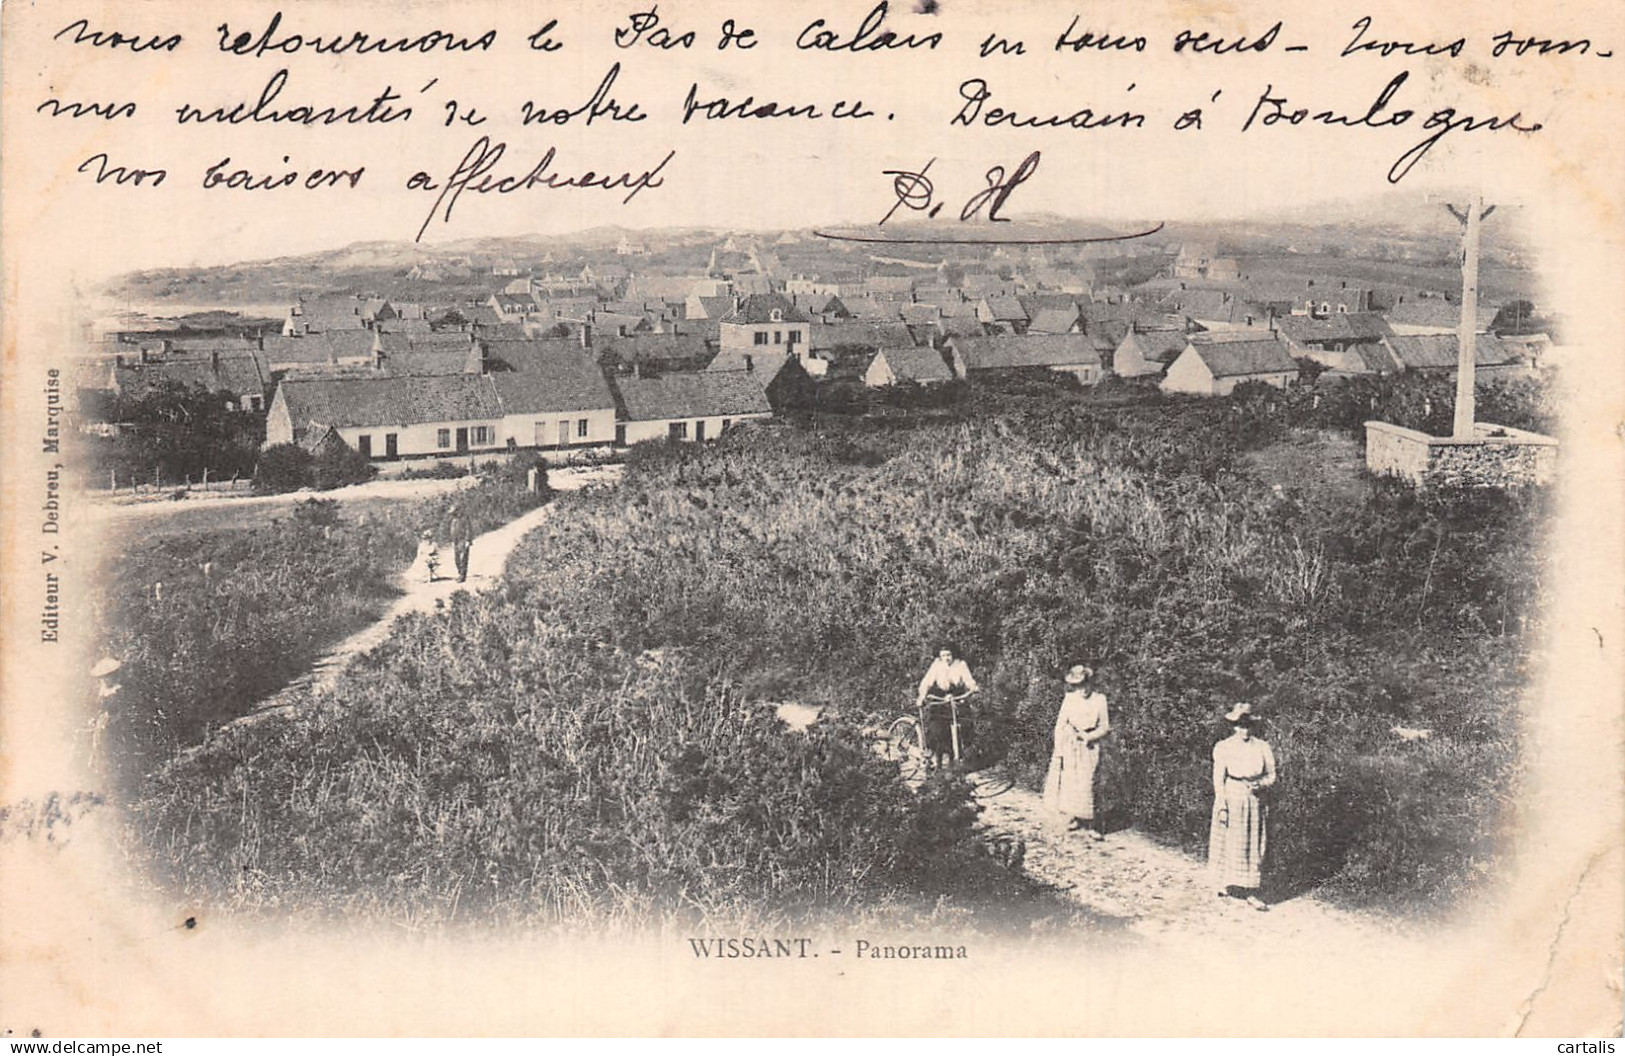 nous retournons le Pas de Calais en tous sens - Nous som-
mes enchantés de notre vacance. Demain à Boulogne
nos baisers affectueux P. H
Editeur V. Debreu, Marquise
WISSANT. - Panorama
delcampe.net
cartalis